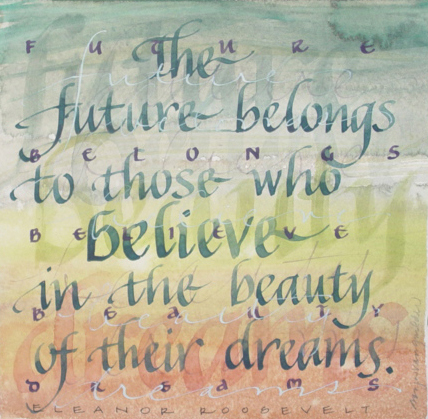 The
F U T U R E
future
future belongs
B E L O N G S
to those who
B E L I E V E
believe
in the beauty
B E A U T Y
of their dreams.
D R E A M S
dreams
ELEANOR ROOSEVELT